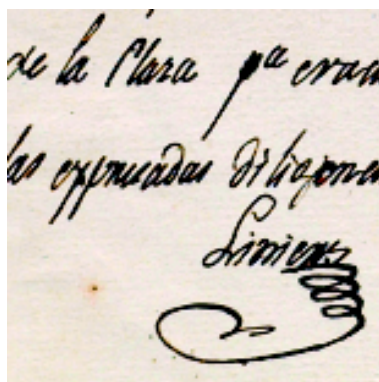 de la Plaza pª evacu
las expresadas diligenci
Liniers